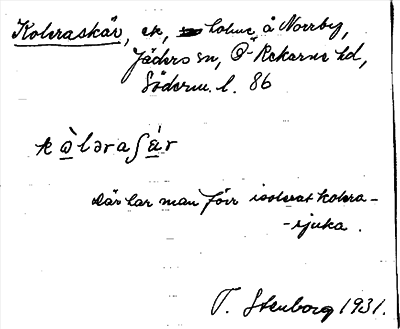 Koleraskär, ek, holme å Norrby,
Jäders sn, Ö Rekarne hd,
Söderm. l. 86
kòləraʃár
Där har man förr isolerat kolera-
-sjuka.
T. Stenborg 1931.